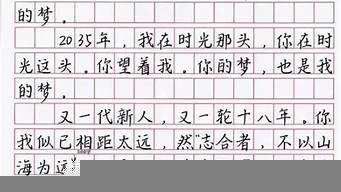 的梦。
2035年，我在时光那头，你在时
光这头。你望着我。你的梦，也是我
的梦。
又一代新人，又一轮十八年。你
我似已相距太远，然“志合者，不以山
海为远